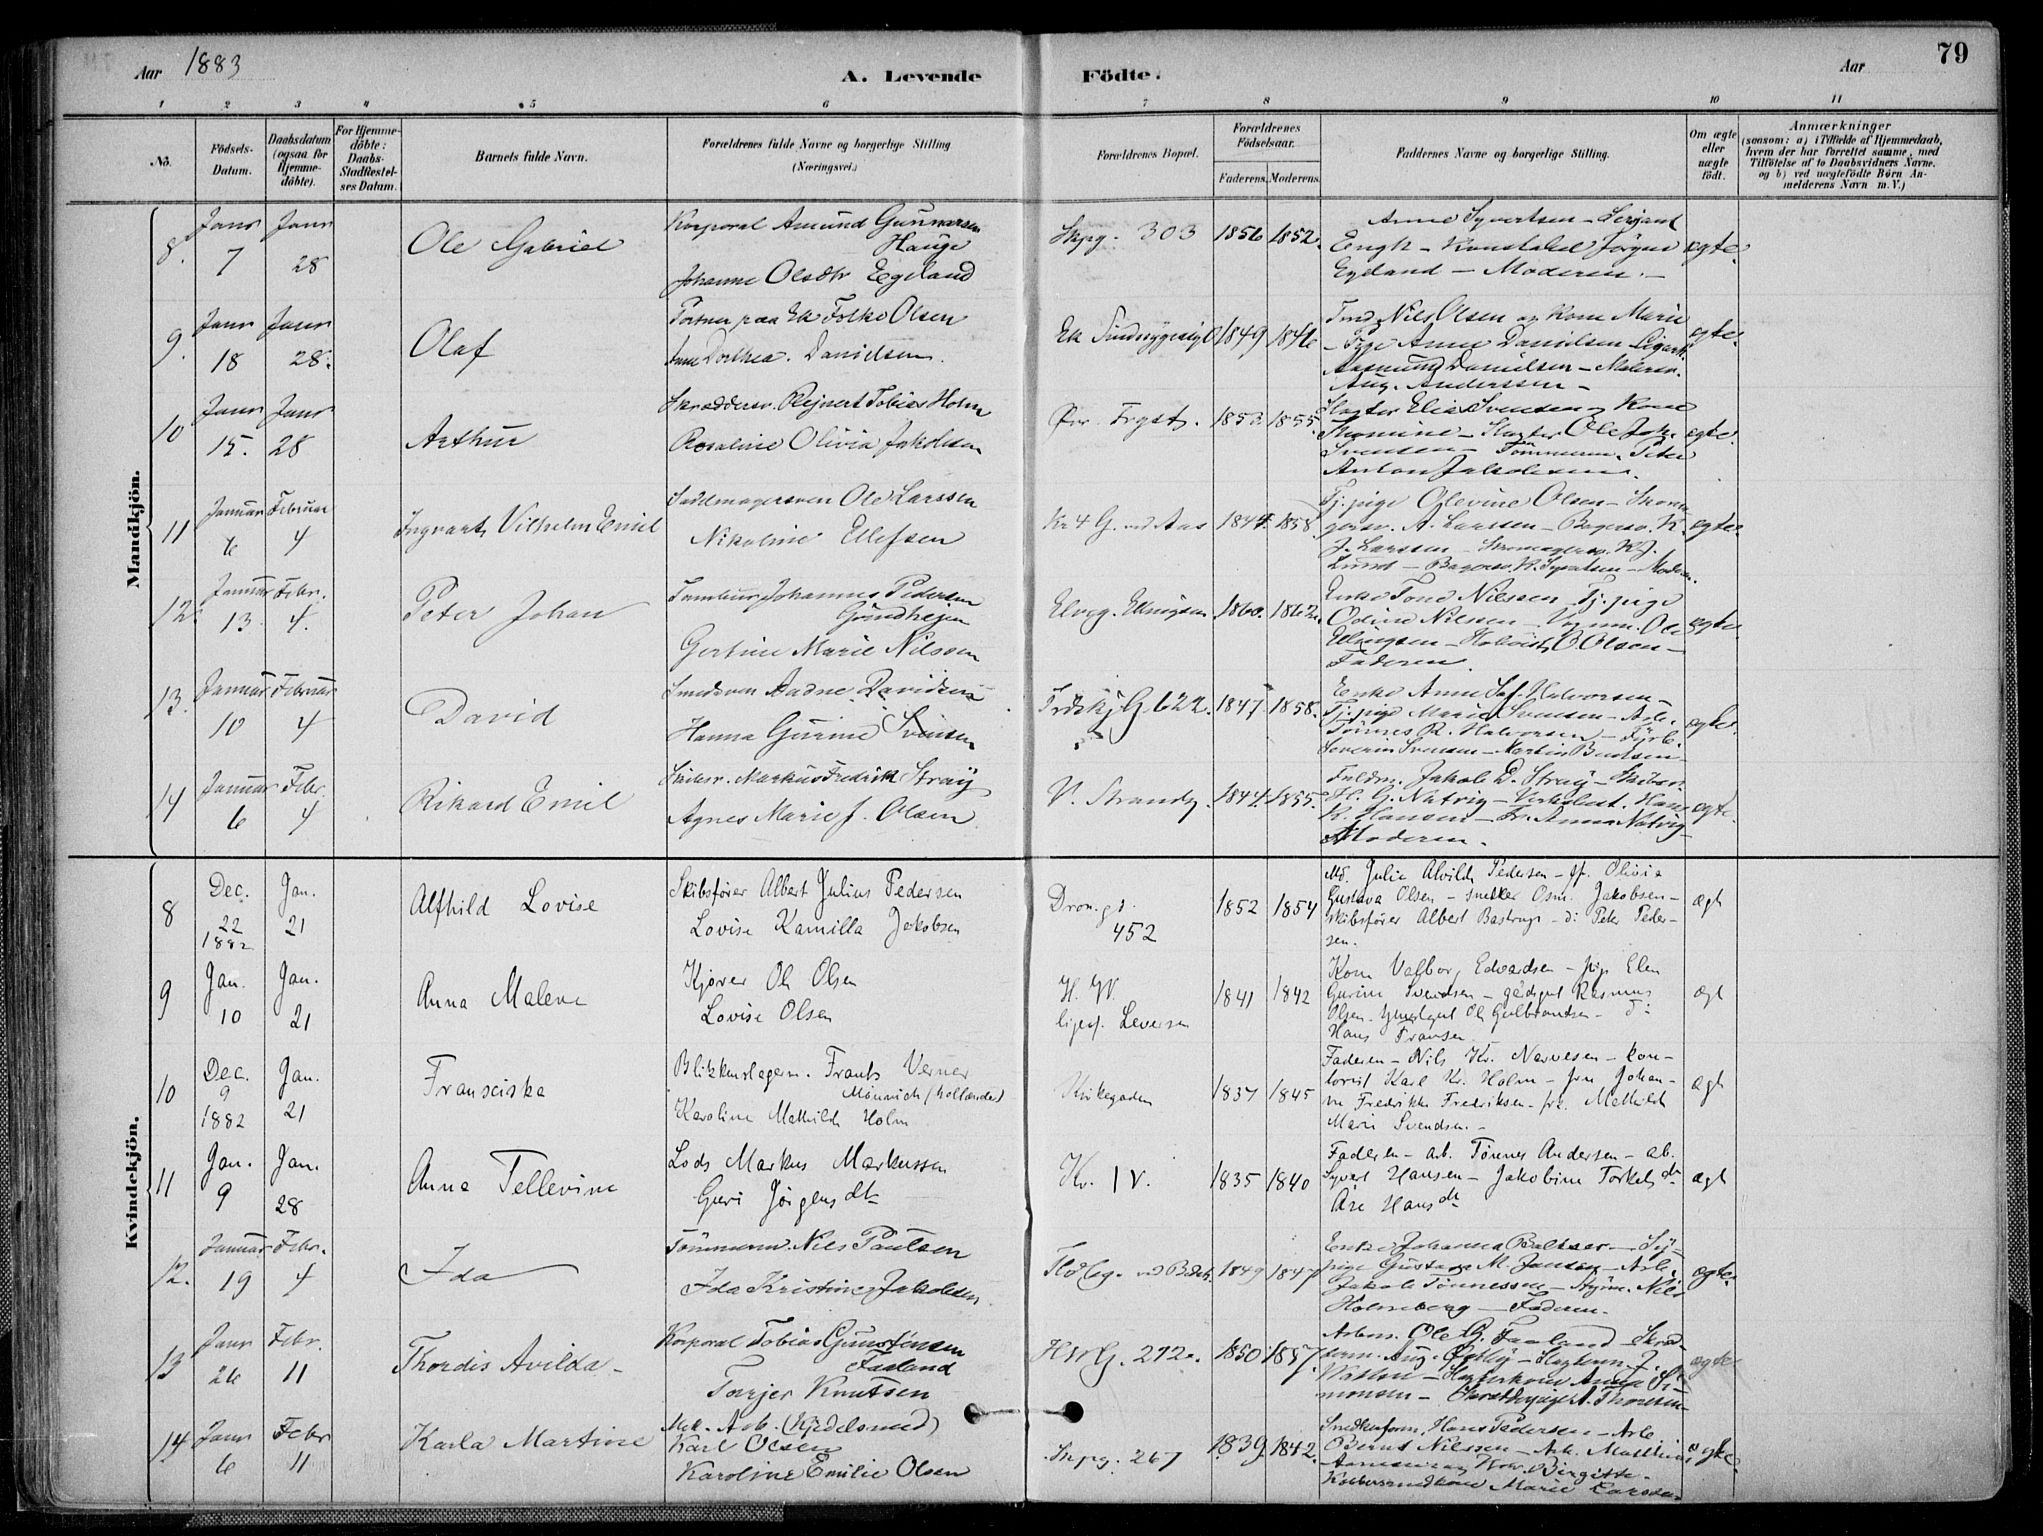 Aar 1883 A. Levende Födte. Aar 79
1 2 3 4 5 6 7 8 9 10 11
No. Födsels-Datum. Daabsdatum (ogsaa for Hjemme-döbte). For Hjemme-döbte: Daabs-Stadfæstel-ses Datum. Barnets fulde Navn. Forældrenes fulde Navne og borgerlige Stilling (Næringsvei.) Forældrenes Bopæl. Forældrenes Födselsaar. Faderens. Moderens. Faddernes Navne og borgerlige Stilling. Om ægte eller uægte födt. Anmærkninger (saasom: a) i Tilfælde af Hjemmedaab, hvem der har forrettet samme, med Tilföielse af to Daabsvidners Navne, og b) ved uægtefödte Børn An-melderens Navn m. V.)
Mandkjön.
8. Janr 7 Janr 28 Ole Gabriel Korporal Amund Gunnarsen Hauge
Johanne Olsdtr Egeland
Skpg. 303 1856 1852. Anne Syvertsen – Sergeant
Engh – Konstabel Jörgen
Egeland – Moderen. – ægte
9. Janr 18 Janr 28. Olaf Portner paa Eg Folke Olsen
Anne Dorthea. Danielsen.
Eg Sindssygeasyl 1849 1846 Nils Olsen og Kone Marie
– Pige Anne Danielsen
Aasmund Danielsen – Malersv.
Aug. Anderssen – ægte.
10 Janr 15. Janr 28 Arthur Skræddersv. Rejnert Tobias Holm
Rosaline Olivia Jakobsen
1853. 1855. Slagter Elias Svensen og Kone
Thomine – Slagter Ole Jak.
Svensen – Tömmerm. Peter
Anton Jakobsen. ægte.
11 Januar 6 Februar 4 Ingvart Vilhelm Emil Sadelmagersven Ole Larssen
Nikoline Ellefsen
Kr 4 G. ved Aas 1844. 1858 Tj.pige Olevine Olsen – Skoma-
gersv. A. Larssen – Bagersv. K.
J. Larssen – Skomagersv. K. J.
Lund – Bagersv. K. Syvertsen – Moderen. ægte.
12. Januar 13 Febr. 4. Peter Johan Tambur Johannes Pedersen
Gertine Marie Nilssen
Elveg. Ellingsen. 1860. 1862. Enke Tone Nilssen – Tj. pige
Odine Nilssen – Vognm. Ole
Ellingsen – B. Olsen –
Faderen. ægte.
13. Januar 10 Februar 4 David Smedsven Aadne Davidsen
Hanna Gurine Svensen
G. 622. 1847. 1858. Enke Anne Sof. Halvorsen –
Tj. pige Marie Svensen – Arb.
Tönnes R. Halvorsen – Fyrb.
Severin Svensen – Martin Bentsen. ægte.
14 Januar 6 Febr. 4 Rikard Emil Skibsr. Markus Fredrik Stray
Agnes Marie J. Olsen
V. Strandg. 1844. 1855. Fuldm. Jakob D. Stray – Skibsr.
H. G. Natvig – Verksbest. Hans
K. Hansen – Fr. Anna Natvig
Moderen. ægte.
Kvindekjön.
8 Dec. 22 1882 Jan. 21 Alfhild Lovise Skibsfører Albert Julius Pedersen
Lovise Kamilla Jakobsen
Dron.gd. 452 1852 1854 Md. Julie Alvilde Pedersen – jf. Olivia
Gustava Olsen – snedker Osm. Jakobsen –
skibsfører Albert Bastrup – d: Peter Peder-
sen. ægt
9 Jan. 10 Jan. 21 Anna Malene Kjører Ole Olsen
Lovise Olsen
H. W. ligeof. Leversen 1841 1842 Kone Valborg Edvardsen – pige Elen
Gurine Svendsen – gådsgut Rasmus
Olsen. Ole Gulbrandsen – d:
Hans Fransen. ægt
10 Dec. 9 1882 Jan. 21 Fransciska Blikkenslagerm. Frants Verner
Münnich (hollænder)
Karoline Mathilde Holm
Kirkegaden 1837 1845 Faderen – Nils Kr. Narvesen – kon-
torist Karl Kr. Holm – fru Johan-
ne Fredrikke Fredriksen – frk. Mathilde
Marie Svendsen. – ægt
11 Jan. 9 Jan. 28 Anna Tellevine Lods Markus Markussen
Guri Jørgensdtr
Kv. IV. 1835 1840 Faderen – arb. Tønnes Andersen – ab.
Syvert Hansen – Jakobine Torkelsdtr
Åse Hansdtr ægt
12. Januar 19 Febr. 4 Ida Tömmerm. Nils Paulsen
Ida Kristine Jakobsen
1849 1847 Enke Johanna Baltser – Sy-
pige Gustava M. Jansen – Arb.
Jakob Tönnessen – Styrm. Nils
Holmeberg – Faderen. ægte.
13 Janr 26 Febr. 11 Thordis Avilda – Korporal Tobias Gunstensen
Faaland
Torjer Knutsen
G. 272. 1850 1857 Arbm. Ole G. Faaland – Skræd-
derm. Aug. – Slagterm. J.
Slagterkone Anna Si-
monsen – Skrædderpige A. Thorsen ægte
14 Janr 6 Febr 11 Karla Martine Mek. Arb. (Kjedelsmed)
Karl Olsen
Karoline Emilie Olsen
Skpg. 267 1839. 1842. Snedkerform. Hans Pedersen – Arb.
Bernt Nilssen – Arb. Mathias
Kone Birgitte.
Kobbersmedkone Marie ægte.